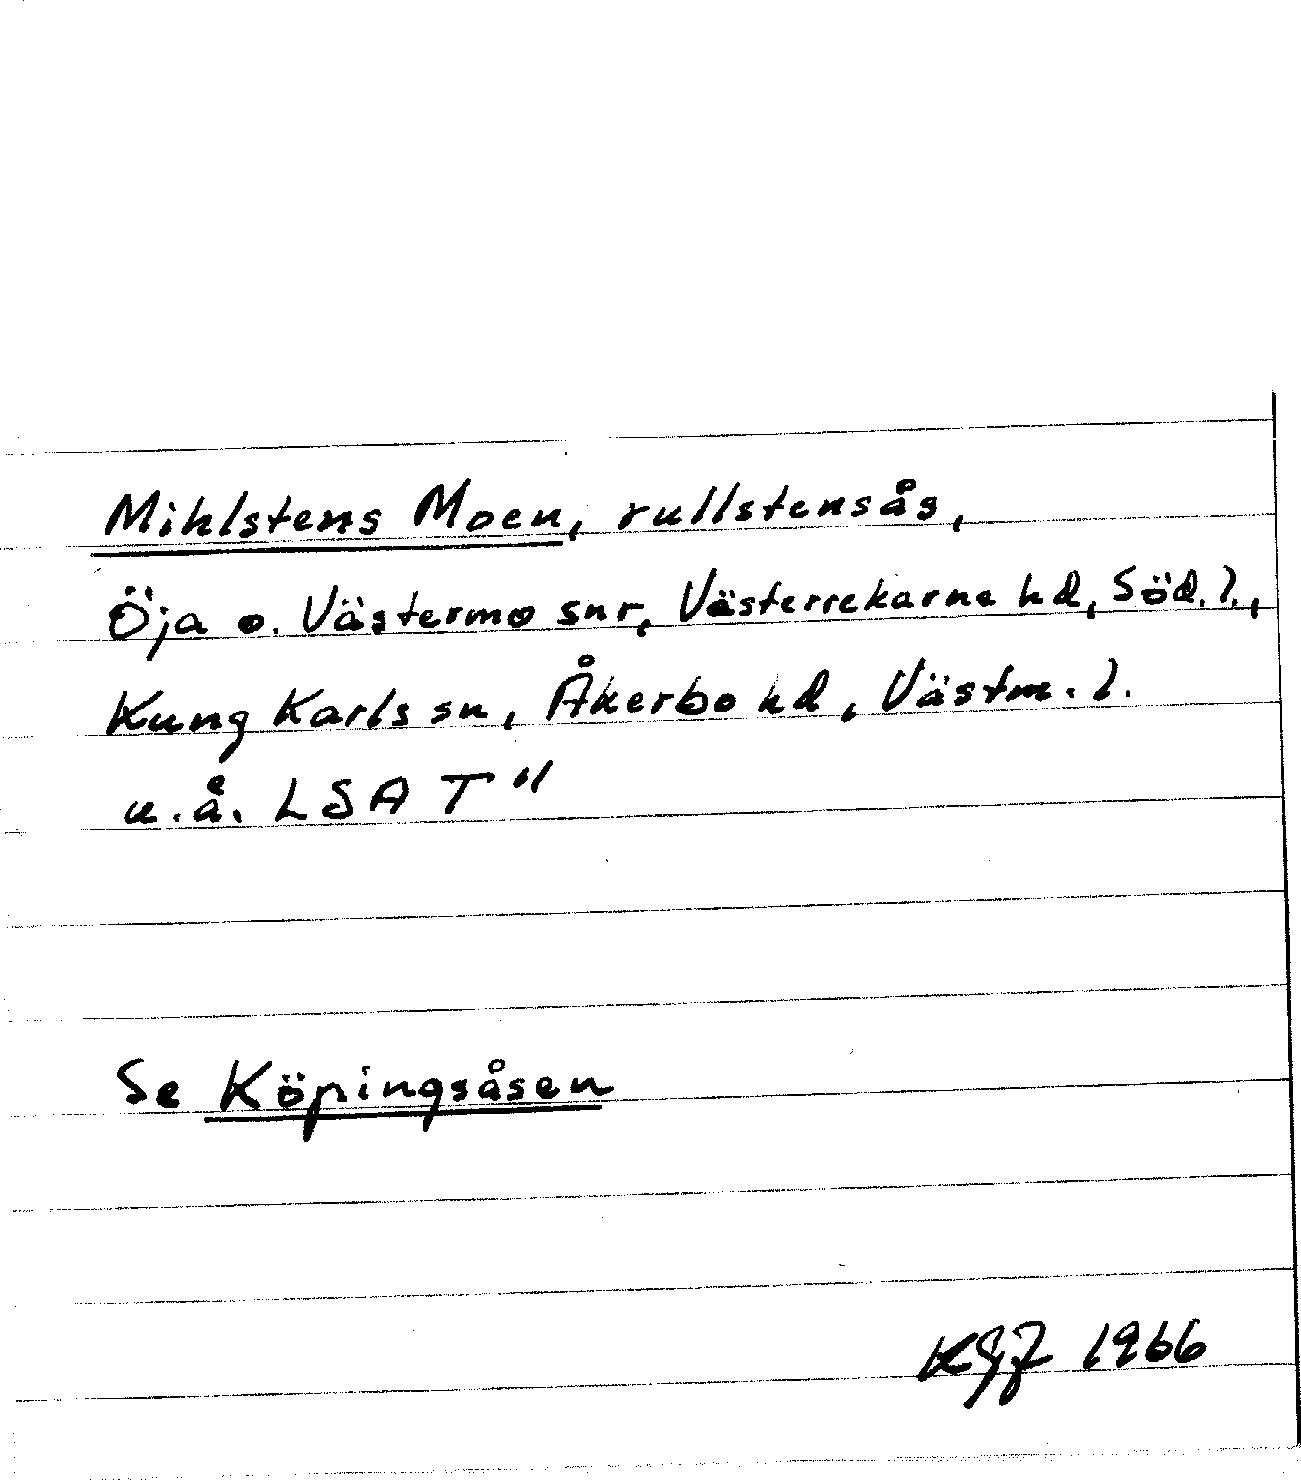 Mihlstens Moen, rullstensås,
Öja o. Västermo snr, Västerrekarne hd, Söd. l.,
Kung Karls sn, Åkerbo hd, Västm. l.
u.å. LSA T"
Se Köpingsåsen
1966